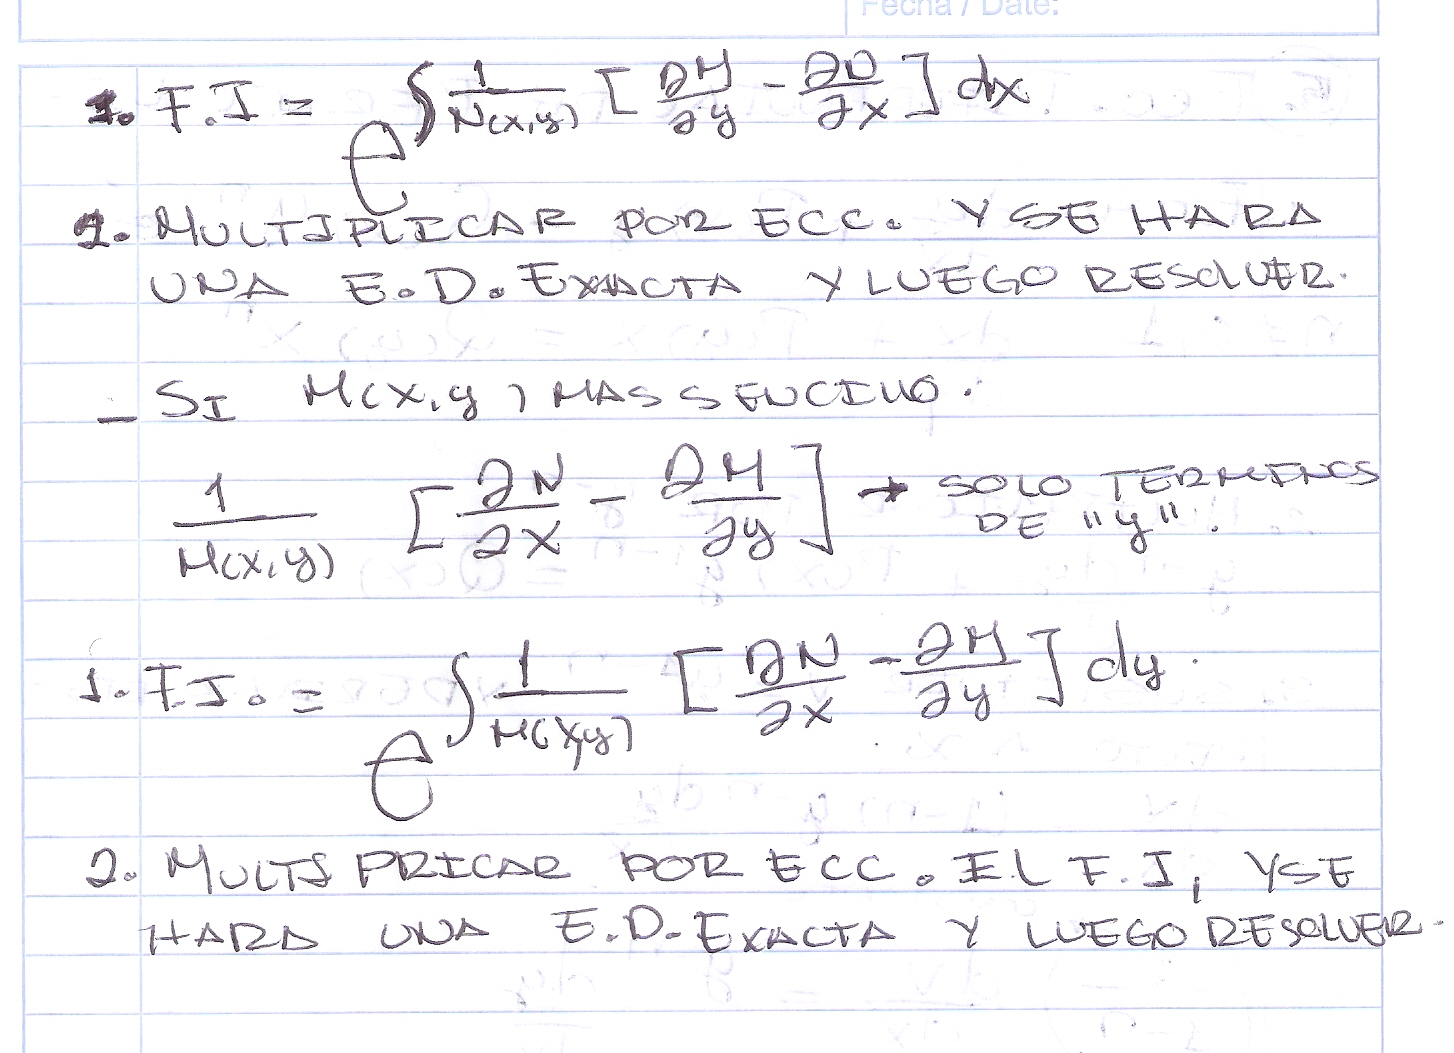 Fecha / Date:
1. F.I = e^∫ 1/N(x,y) [∂M/∂y - ∂N/∂x] dx
2. MULTIPLICAR POR ECC. Y SE HARA
UNA E.D. EXACTA Y LUEGO RESOLVER.
- SI M(x,y) MAS SENCILLO.
1/M(x,y) [∂N/∂x - ∂M/∂y] → SOLO TERMINOS
DE "y".
1. F.I. = e^∫ 1/M(x,y) [∂N/∂x - ∂M/∂y] dy.
2. MULTIPRICAR POR ECC. EL F.I, Y SE
HARA UNA E.D. EXACTA Y LUEGO RESOLVER.